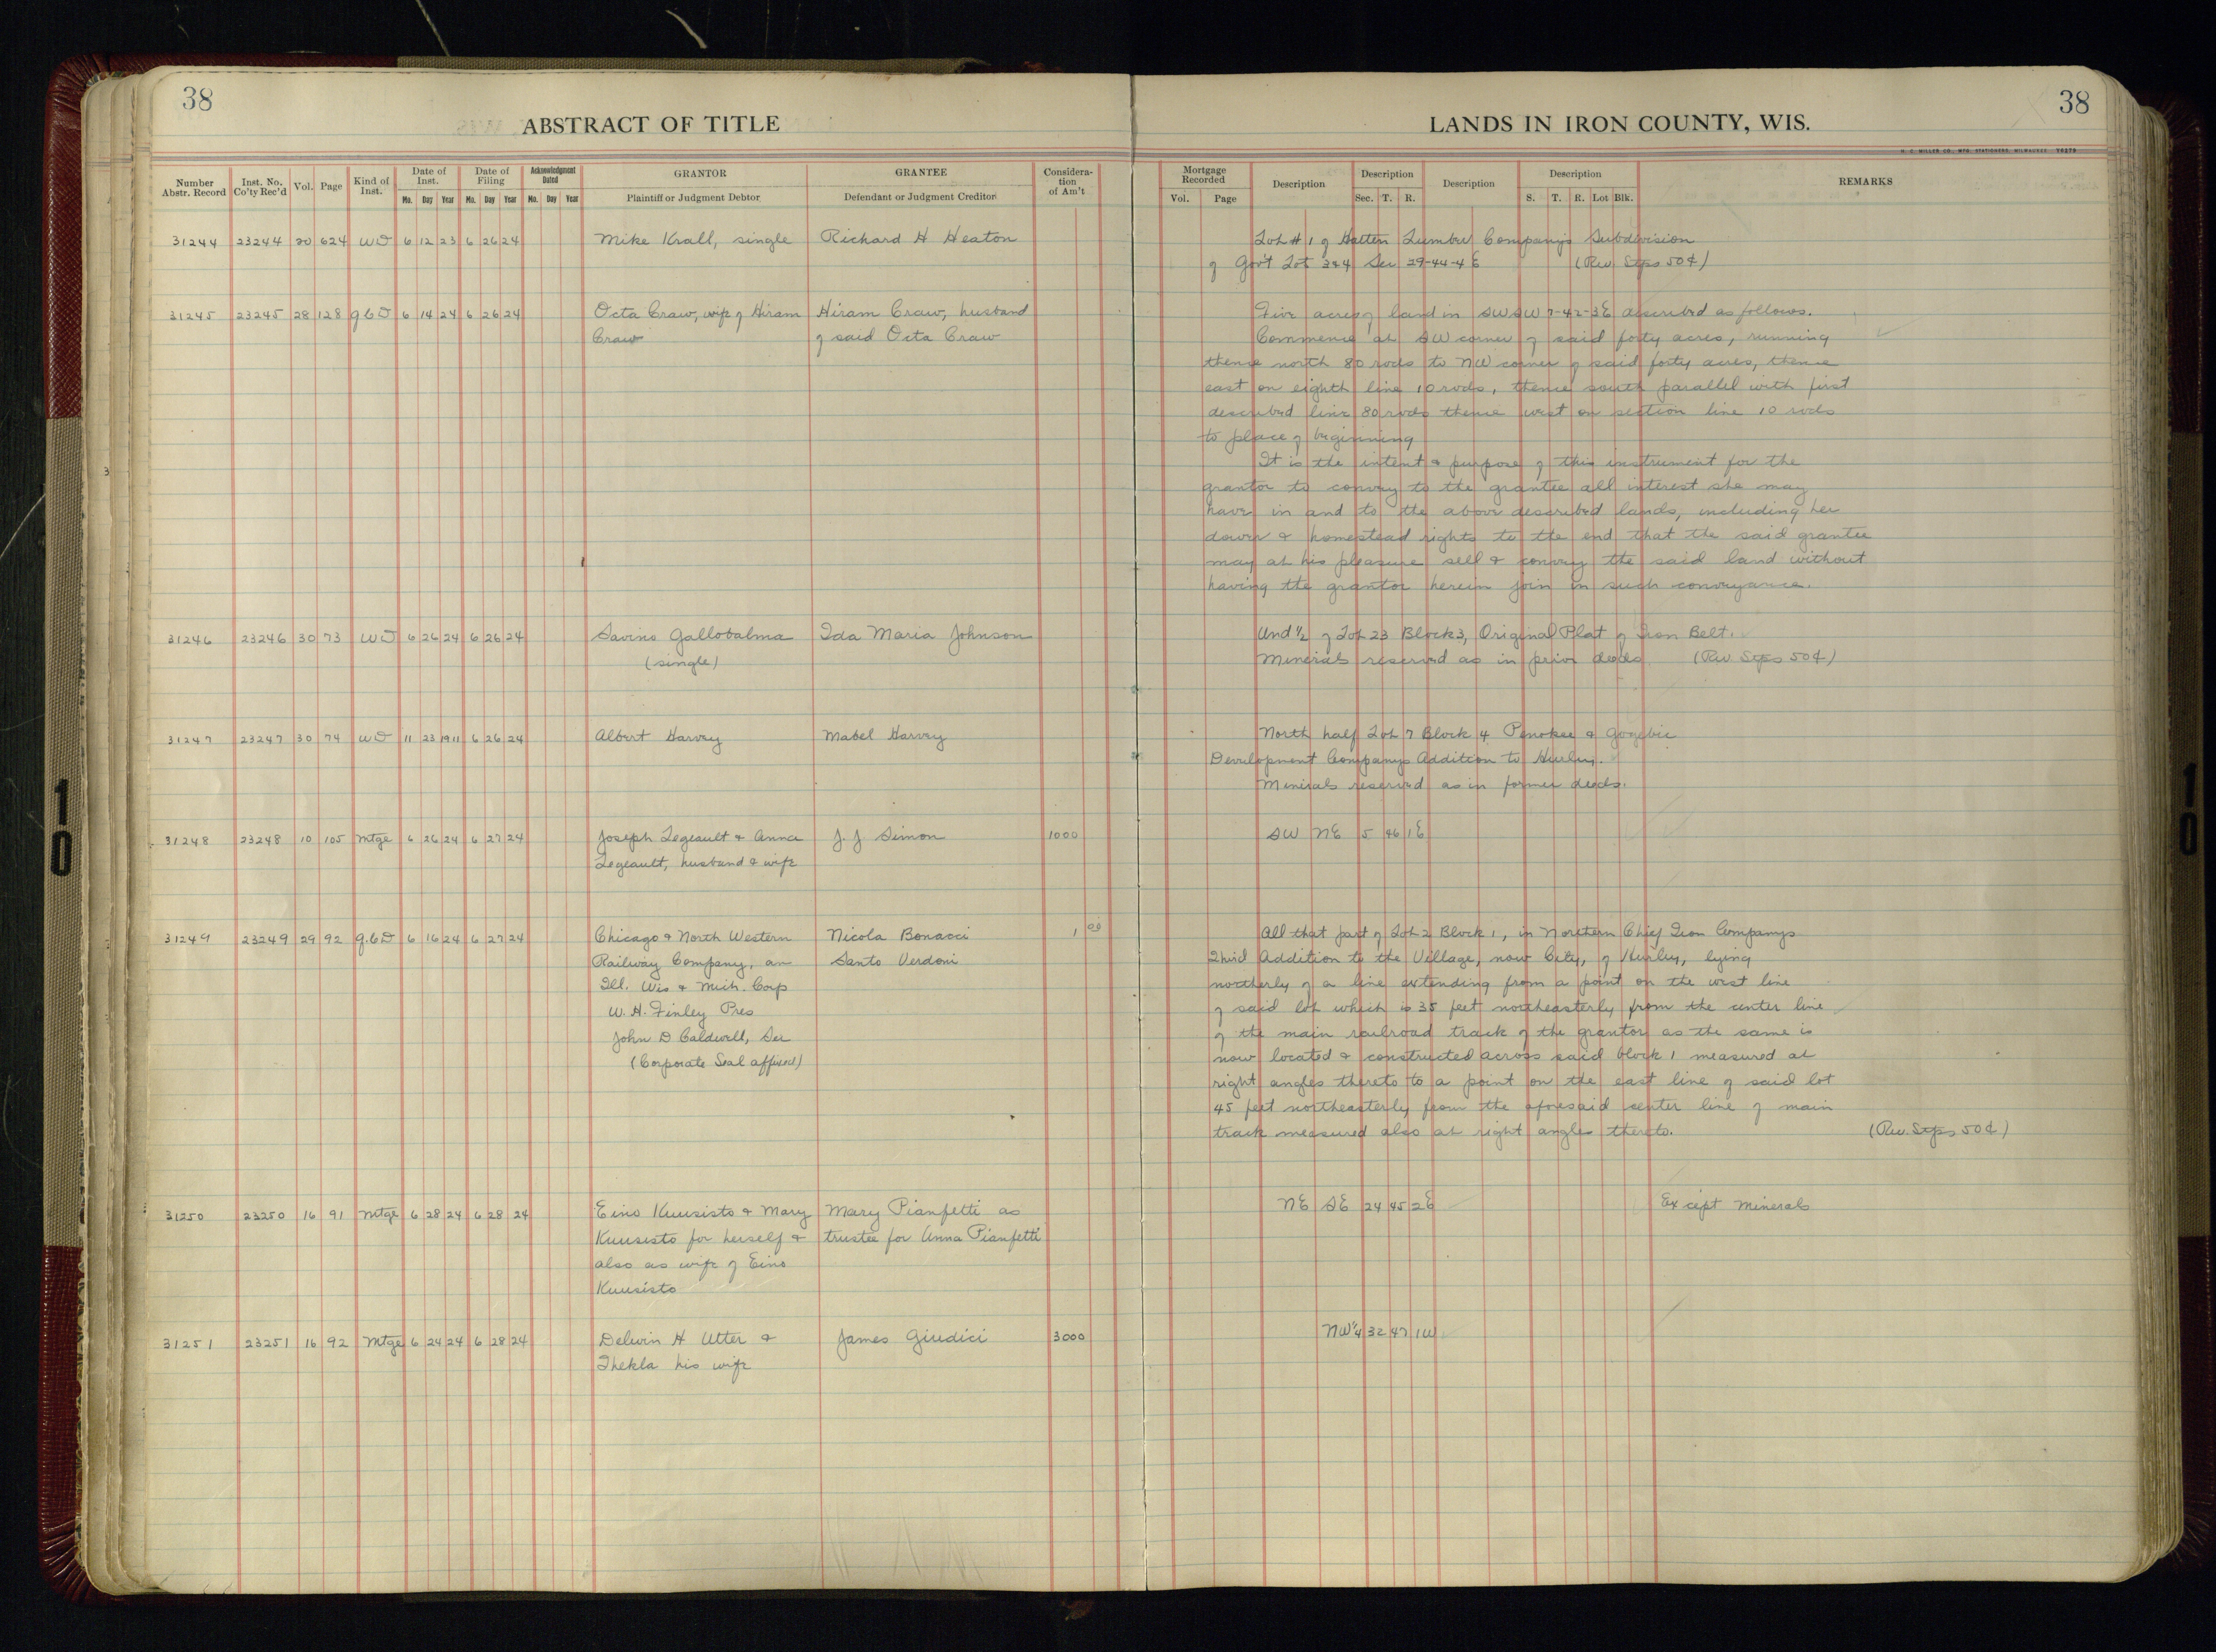 38
ABSTRACT OF TITLE
LANDS IN IRON COUNTY, WIS.
38
Number Abstr. Record Inst. No. Co'ty Rec'd Vol. Page Kind of Inst. Date of Inst. Mo. Day Year Date of Filing Mo. Day Year Acknowledgment Dated Mo. Day Year GRANTOR Plaintiff or Judgment Debtor GRANTEE Defendant or Judgment Creditor Consideration of Am't
Mortgage Recorded Vol. Page Description Description Sec. T. R. Description Description S. T. R. Lot Blk. REMARKS
31244 23244 20 624 WD 6 12 23 6 26 24 Mike Krall, single Richard H Heaton Lot #1 of Hatten Lumber Company's Subdivision
of Gov't Lot 3&4 Sec 29-44-4E (Rev Stps 50¢)
31245 23245 28 128 QCD 6 14 24 6 26 24 Octa Craw, wife of Hiram Hiram Craw, husband Five acres of land in SWSW 7-42-3E described as follows.
Craw of said Octa Craw Commence at SW corner of said forty acres, running
thence north 80 rods to NW corner of said forty acres, thence
east on eighth line 10 rods, thence south parallel with first
described line 80 rods thence west on section line 10 rods
to place of beginning
It is the intent & purpose of this instrument for the
grantor to convey to the grantee all interest she may
have in and to the above described lands, including her
dower & homestead rights to the end that the said grantee
may at his pleasure sell & convey the said land without
having the grantor herein join in such conveyance.
31246 23246 30 73 WD 6 26 24 6 26 24 Savino Gallobalma Ida Maria Johnson Und ½ of Lot 23 Block 3, Original Plat of Iron Belt.
(single) Minerals reserved as in prior deeds (Rev Stps 50¢)
31247 23247 30 74 WD 11 23 1911 6 26 24 Albert Harvey Mabel Harvey North half Lot 7 Block 4 Penokee & Gogebic
Development Companys Addition to Hurley.
Minerals reserved as in former deeds.
31248 23248 10 105 Mtge 6 26 24 6 27 24 Joseph Legeault & Anna J. J Simon 1000 SW NE 5 46 1E
Legeault, husband & wife
31249 23249 29 92 Q.C.D 6 16 24 6 27 24 Chicago & North Western Nicola Bonacci 1 00 All that part of Lot 2 Block 1, in Northern Chief Iron Companys
Railway Company, an Santo Verdoni Third Addition to the Village, now City, of Hurley, lying
Ill. Wis & Mich. Corp northerly of a line extending from a point on the west line
W. H. Finley Pres of said lot which is 35 feet northeasterly from the center line
John D Caldwell, Sec of the main railroad track of the grantor as the same is
(Corporate Seal affixed) now located & constructed across said block 1 measured at
right angles thereto to a point on the east line of said lot
45 feet northeasterly from the aforesaid center line of main
track measured also at right angles thereto. (Rev. Stps 50¢)
31250 23250 16 91 Mtge 6 28 24 6 28 24 Eino Kuusisto & Mary Mary Pianfetti as NE SE 24 45 2E Except Minerals
Kuusisto for herself & trustee for Anna Pianfetti
also as wife of Eino
Kuusisto
31251 23251 16 92 Mtge 6 24 24 6 28 24 Delwin H Utter & James Giudici 3000 NW¼ 32 47 1W
Thekla his wife
10
10